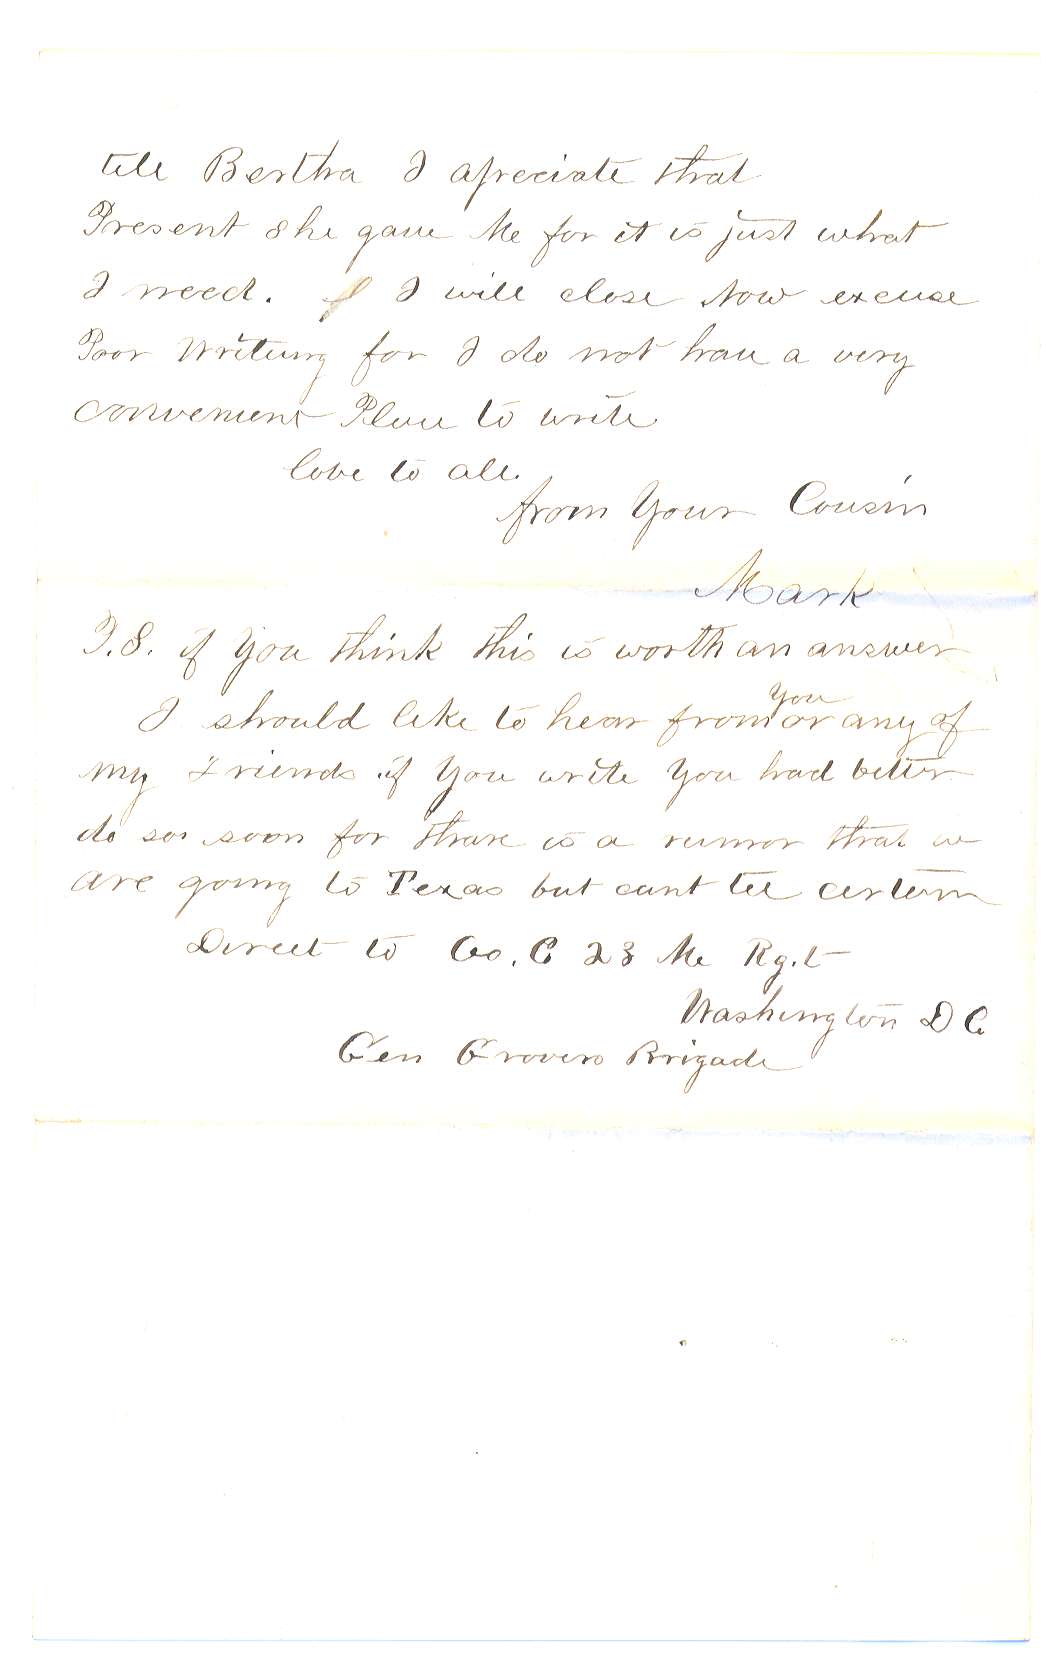 tell Bertha I apreciate that
Present she gave Me for it is just what
I need. I I will close Now excuse
Poor Writeing for I do not have a very
convenient Place to write
love to all.
from Your Cousin
Mark
P.S. if You think this is worth an answer
I should like to hear from you or any of
my Friends if You write You had better
do so soon for thare is a rumor that we
are going to Texas but cant tell certern
Direct to Co. C 23 Me Rg.t
Washington D C
Gen Grovers Brigade